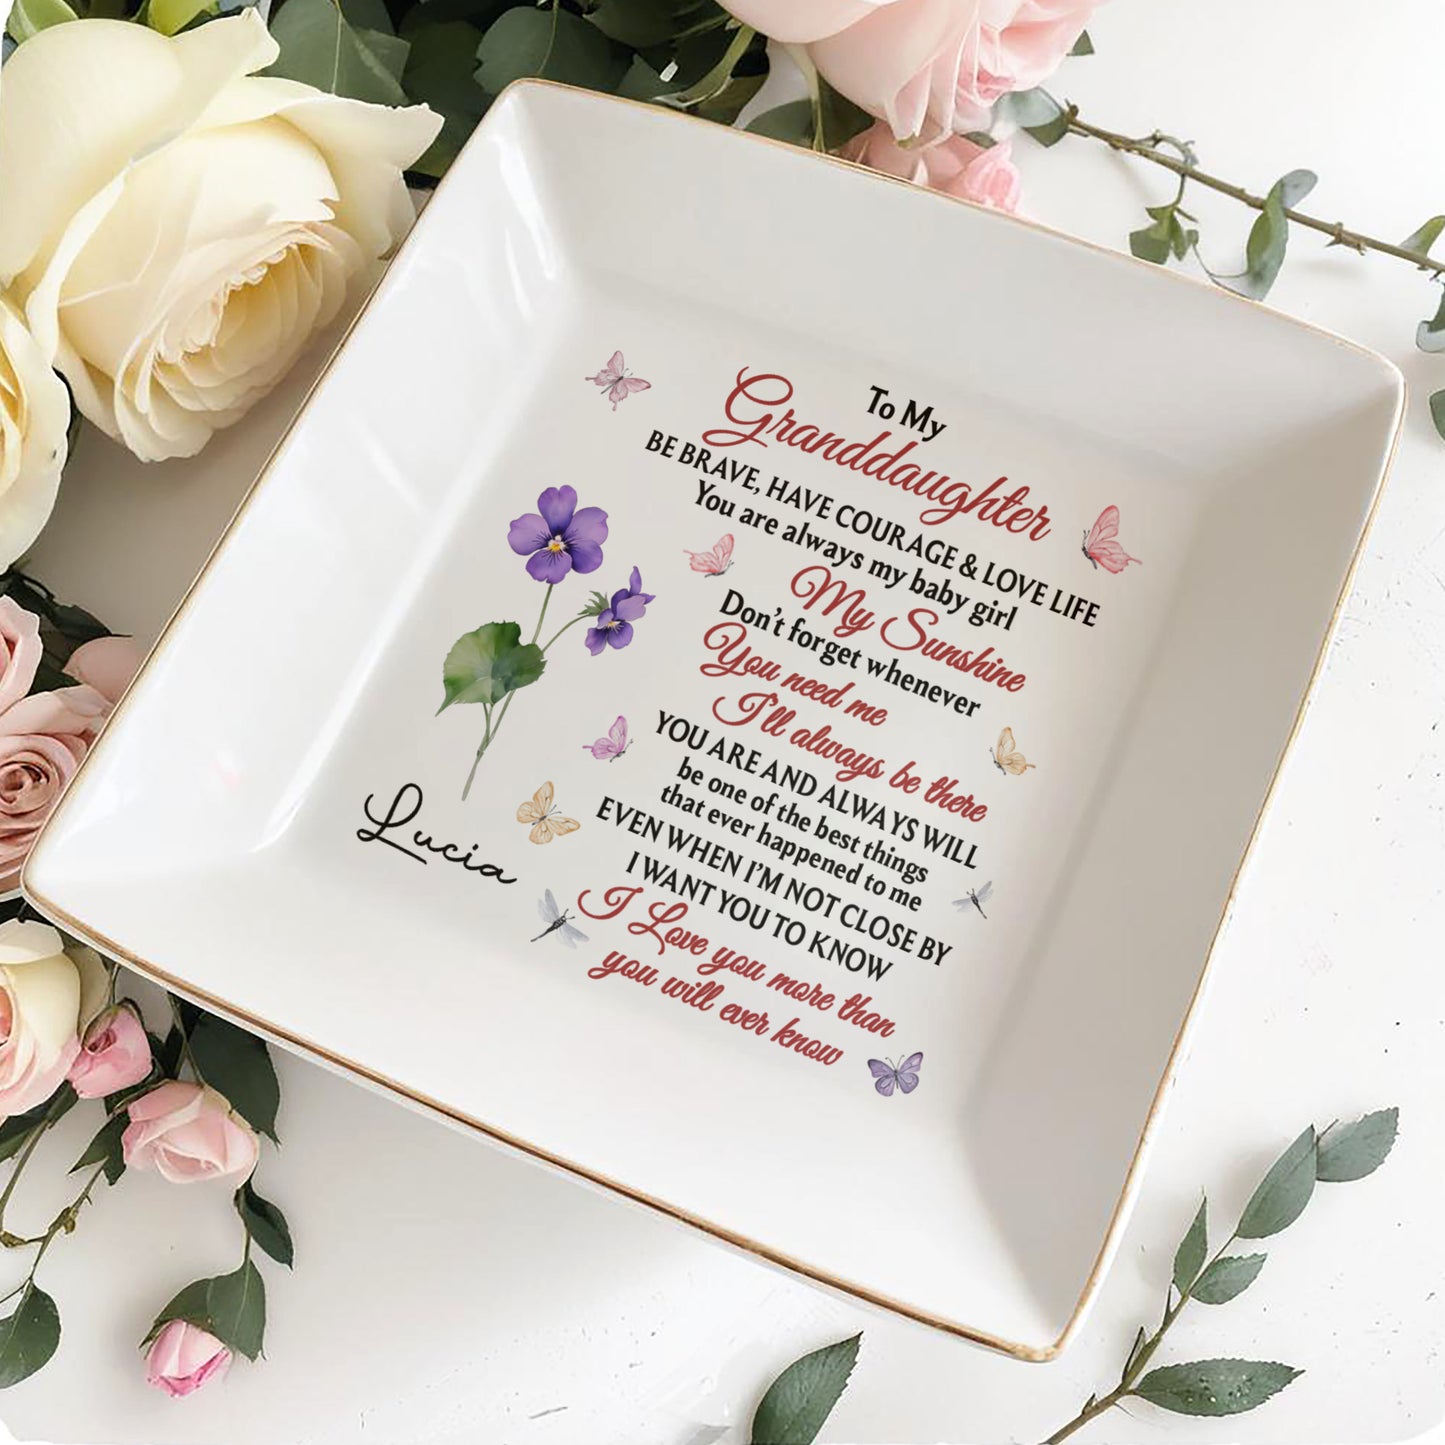 To My
Granddaughter
BE BRAVE, HAVE COURAGE & LOVE LIFE
You are always my baby girl
My Sunshine
Don't forget whenever
You need me
I'll always be there
YOU ARE AND ALWAYS WILL
be one of the best things
that ever happened to me
EVEN WHEN I'M NOT CLOSE BY
I WANT YOU TO KNOW
I Love you more than
you will ever know
Lucia